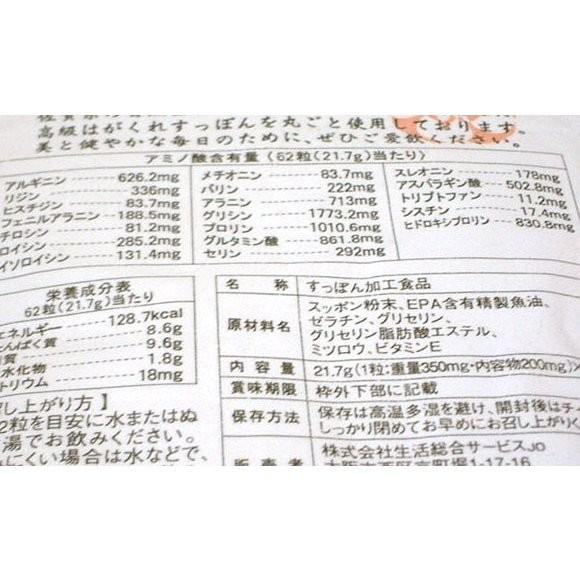 高級はがくれすっぽんを丸ごと使用しております。
美と健やかな毎日のために、ぜひご愛飲ください。
アミノ酸含有量(62粒(21.7g)当たり)
アルギニン 626.2mg メチオニン 83.7mg スレオニン 178mg
リジン 336mg バリン 222mg アスパラギン酸 502.8mg
ヒスチジン 83.7mg アラニン 713mg トリプトファン 11.2mg
フェニルアラニン 188.5mg グリシン 1773.2mg シスチン 17.4mg
チロシン 81.2mg プロリン 1010.6mg ヒドロキシプロリン 830.8mg
ロイシン 285.2mg グルタミン酸 861.8mg
イソロイシン 131.4mg セリン 292mg
栄養成分表
62粒(21.7g)当たり
エネルギー 128.7kcal
たんぱく質 8.6g
質 9.6g
水化物 1.8g
トリウム 18mg
し上がり方】
2粒を目安に水またはぬ
湯でお飲みください。
にくい場合は水などで、
名称 すっぽん加工食品
原材料名 スッポン粉末、EPA含有精製魚油、
ゼラチン、グリセリン、
グリセリン脂肪酸エステル、
ミツロウ、ビタミンE
内容量 21.7g(1粒:重量350mg・内容物200mg)×
賞味期限 枠外下部に記載
保存方法 保存は高温多湿を避け、開封後はチ
しっかり閉めてお早めにお召し上がりく
販売者 株式会社生活総合サービスJO
大阪市西区京町堀1-17-16